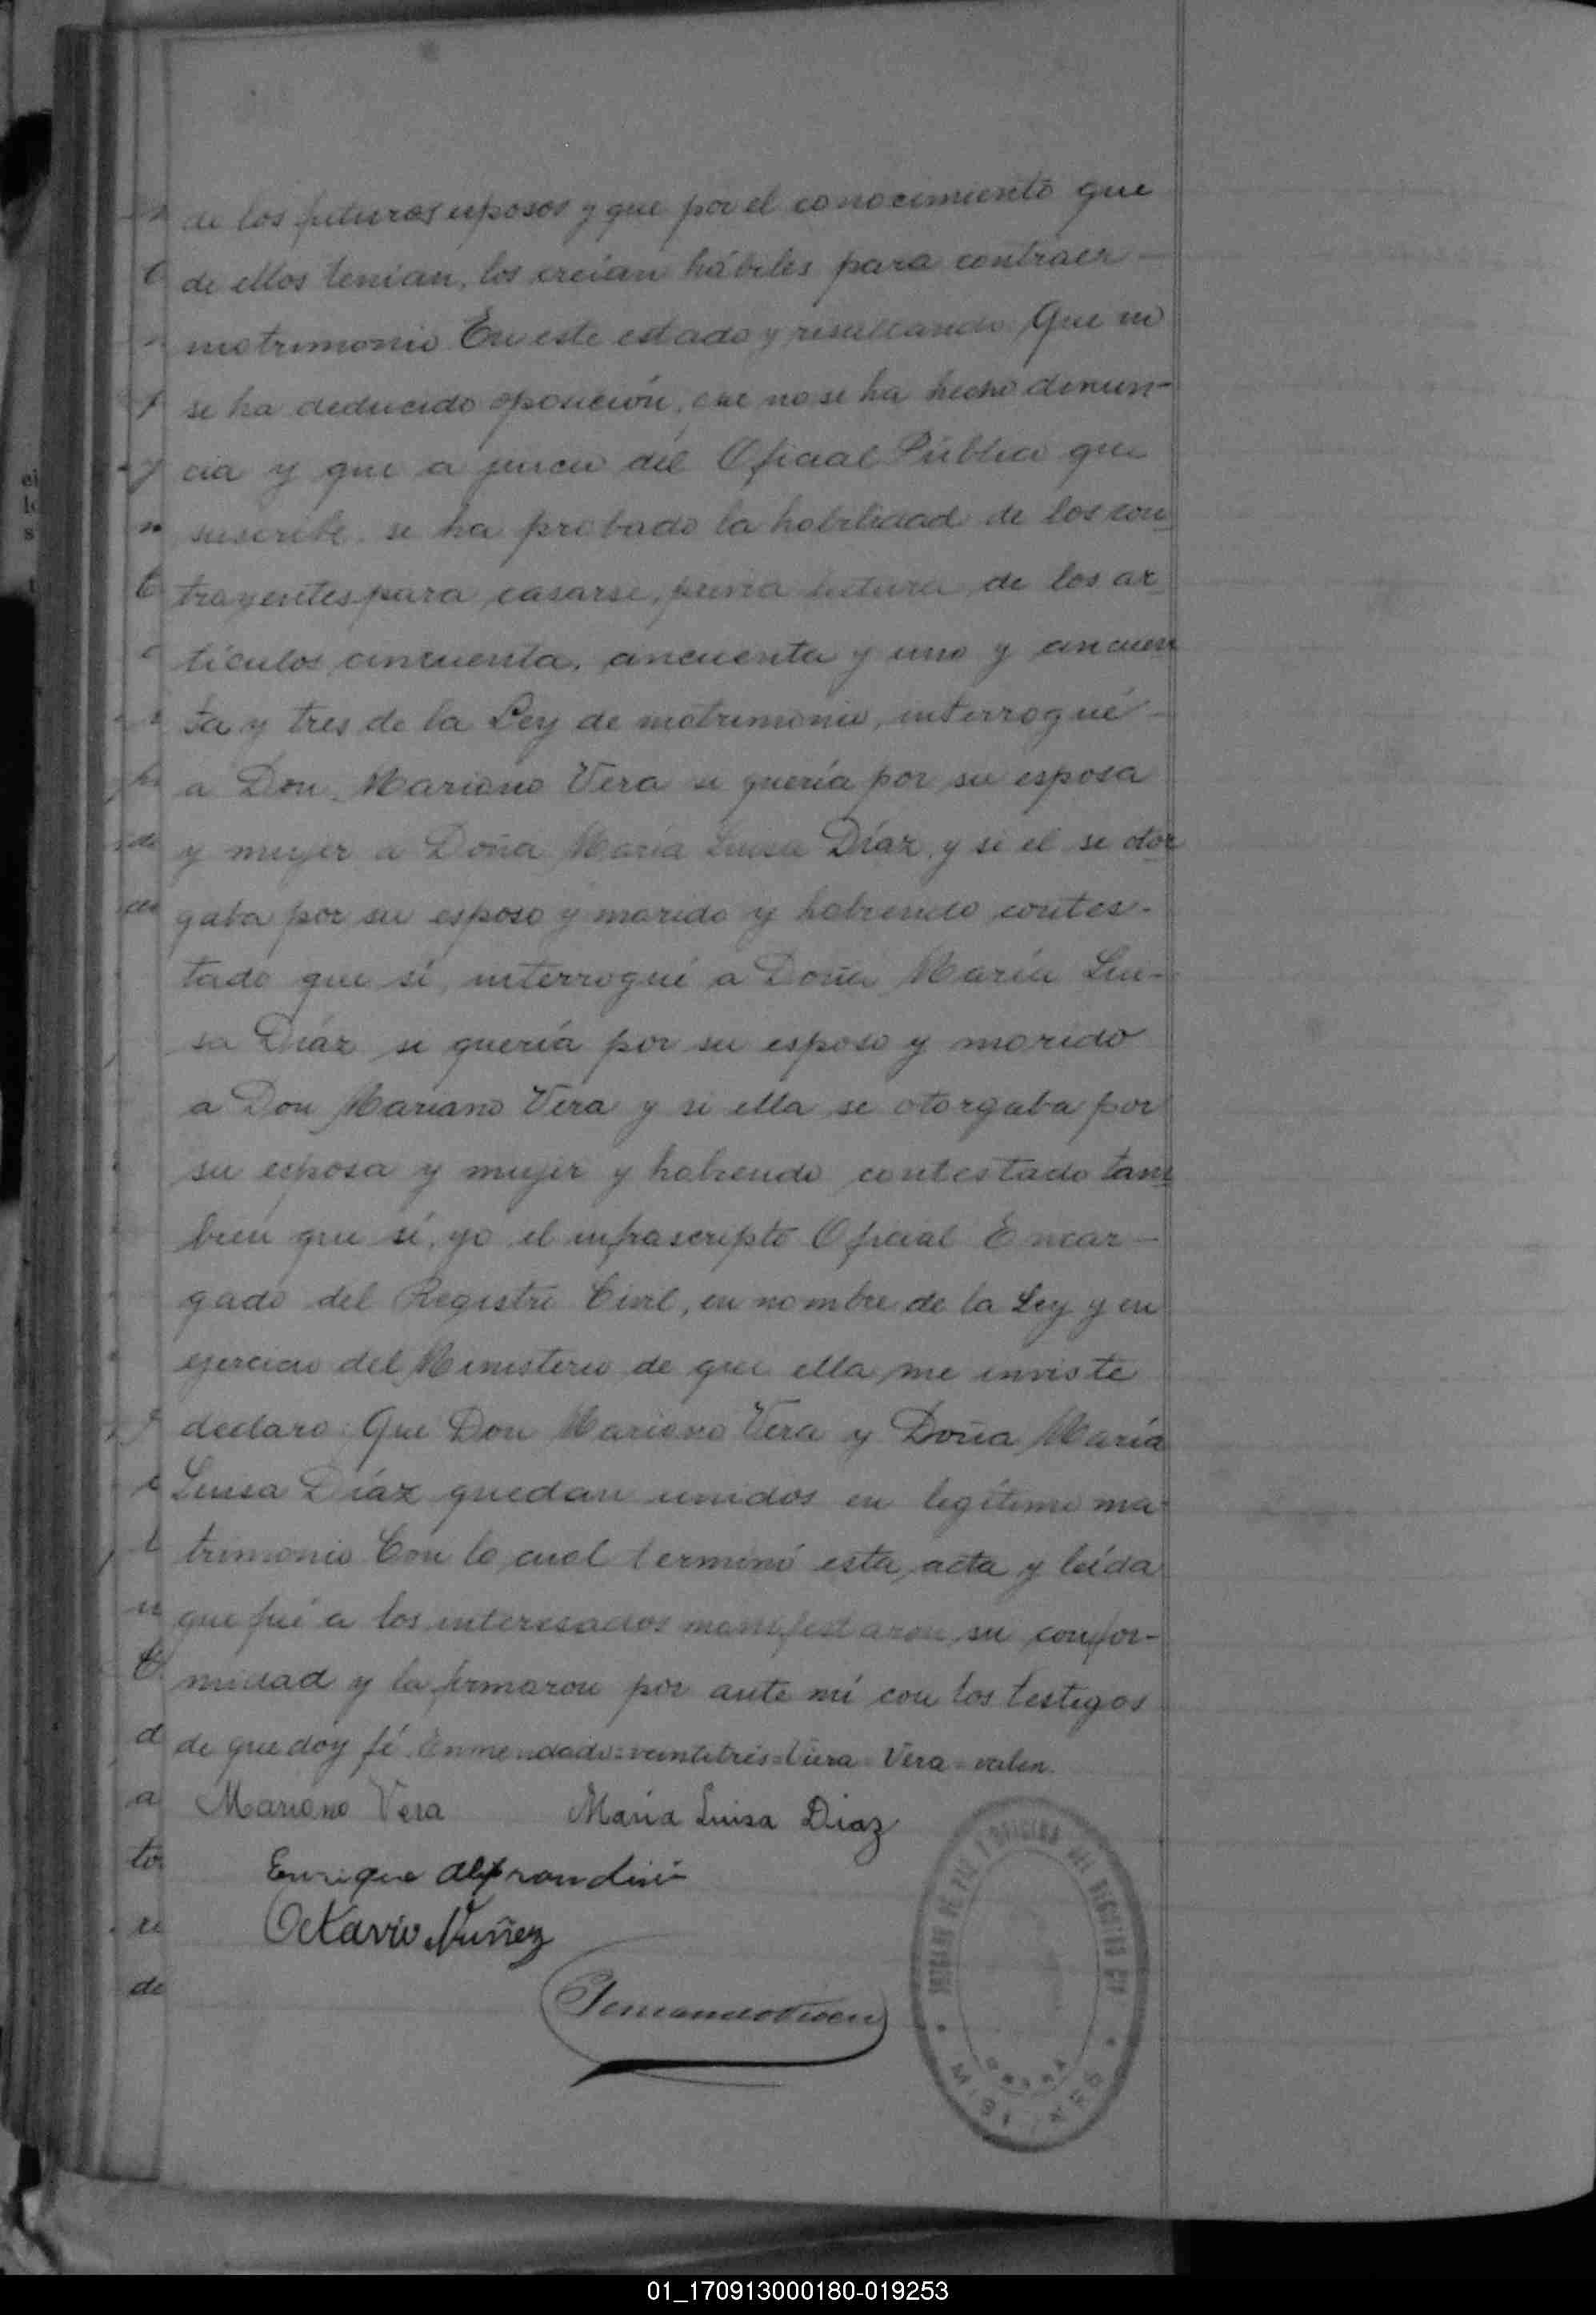 de los futuros esposos y que por el conocimiento que
de ellos tenían, los creían hábiles para contraer -
matrimonio En este estado y resultando: Que no
se ha deducido oposición, que no se ha hecho denun-
cia y que a juicio del Oficial Público que
suscribe se ha probado la habilidad de los con
trayentes para casarse, previa lectura de los ar
tículos cincuenta, cincuenta y uno y cincuen
ta y tres de la Ley de matrimonio, interrogué -
a Don Mariano Vera si quería por su esposa
y mujer a Doña María Luisa Díaz, y si el se otor
gaba por su esposo y marido y habiendo contes-
tado que sí, interrogué a Doña María Lui-
sa Díaz si quería por su esposo y marido
a Don Mariano Vera y si ella se otorgaba por
su esposa y mujer y habiendo contestado tam
bien que sí, yo el infrascripto Oficial Encar-
gado del Registro Civil, en nombre de la Ley y en
ejercicio del Ministerio de que ella me inviste
declaro: Que Don Mariano Vera y Doña María
Luisa Díaz quedan unidos en legítimo ma-
trimonio Con lo cual terminó esta acta y leída
que fué a los interesados manifestaron su confor-
midad y la firmaron por ante mí con los testigos
de que doy fé. Enmendado = veintitrés = Vera = valen.
Mariano Vera María Luisa Diaz
Enrique
Octavio Nuñez
JUZGADO DE PAZ Y OFICINA DEL REGISTRO CIV
MISIONES
01_170913000180-019253